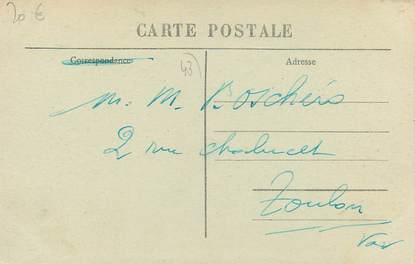 20 €
CARTE POSTALE
Correspondance
Adresse
43)
M. M. Boschéro
2 rue Chalucet
Toulon
Var